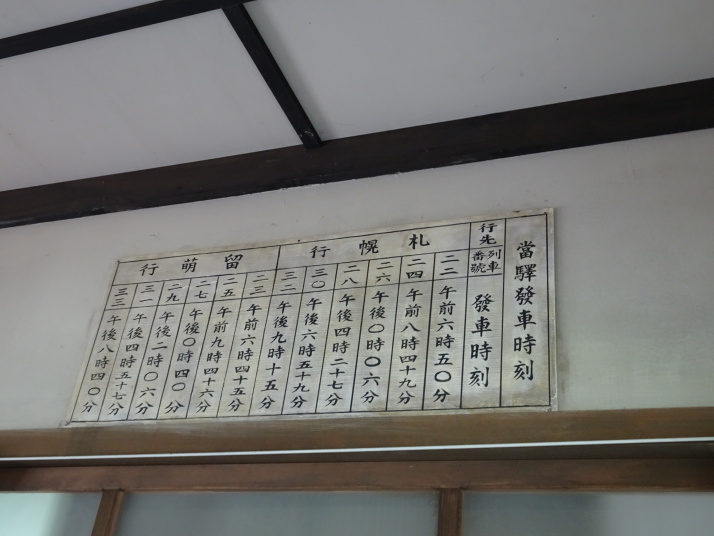 當驛發車時刻
行先
列車番號
發車時刻
札幌行
二二 午前六時五〇分
二四 午前八時四十九分
二六 午後〇時〇六分
二八 午後四時二十七分
三〇 午後六時五十九分
三二 午後九時十五分
留萌行
二三 午前六時四十五分
二五 午前九時四十六分
二七 午後〇時四〇分
二九 午後二時〇六分
三一 午後四時五十七分
三三 午後八時四〇分